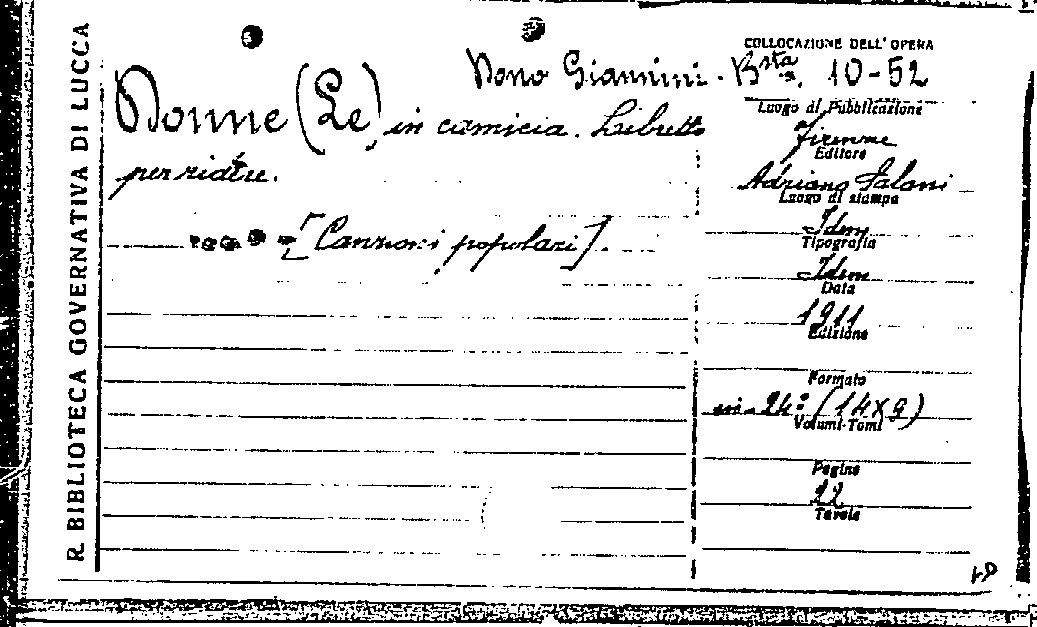 R. BIBLIOTECA GOVERNATIVA DI LUCCA
Dono Giannini - Bsta. 10-52
Donne (Le) in camicia. Libretto
per ridere.
[Canzoni popolari].
COLLOCAZIONE DELL'OPERA
Luogo di Pubblicazione
Firenze
Editore
Adriano Salani
Luogo di stampa
Idem
Tipografia
Idem
Data
1911
Edizione
Formato
in-24º (14x9)
Volumi-Tomi
Pagine
22
Tavole